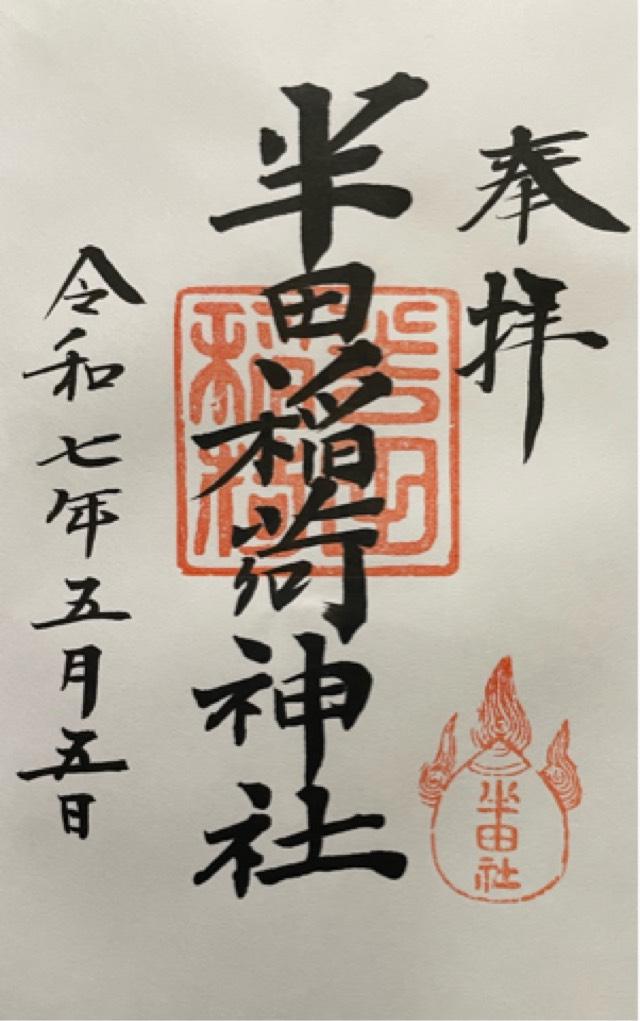 奉拝
半田稲荷神社
半田稲荷
半田社
令和七年五月五日